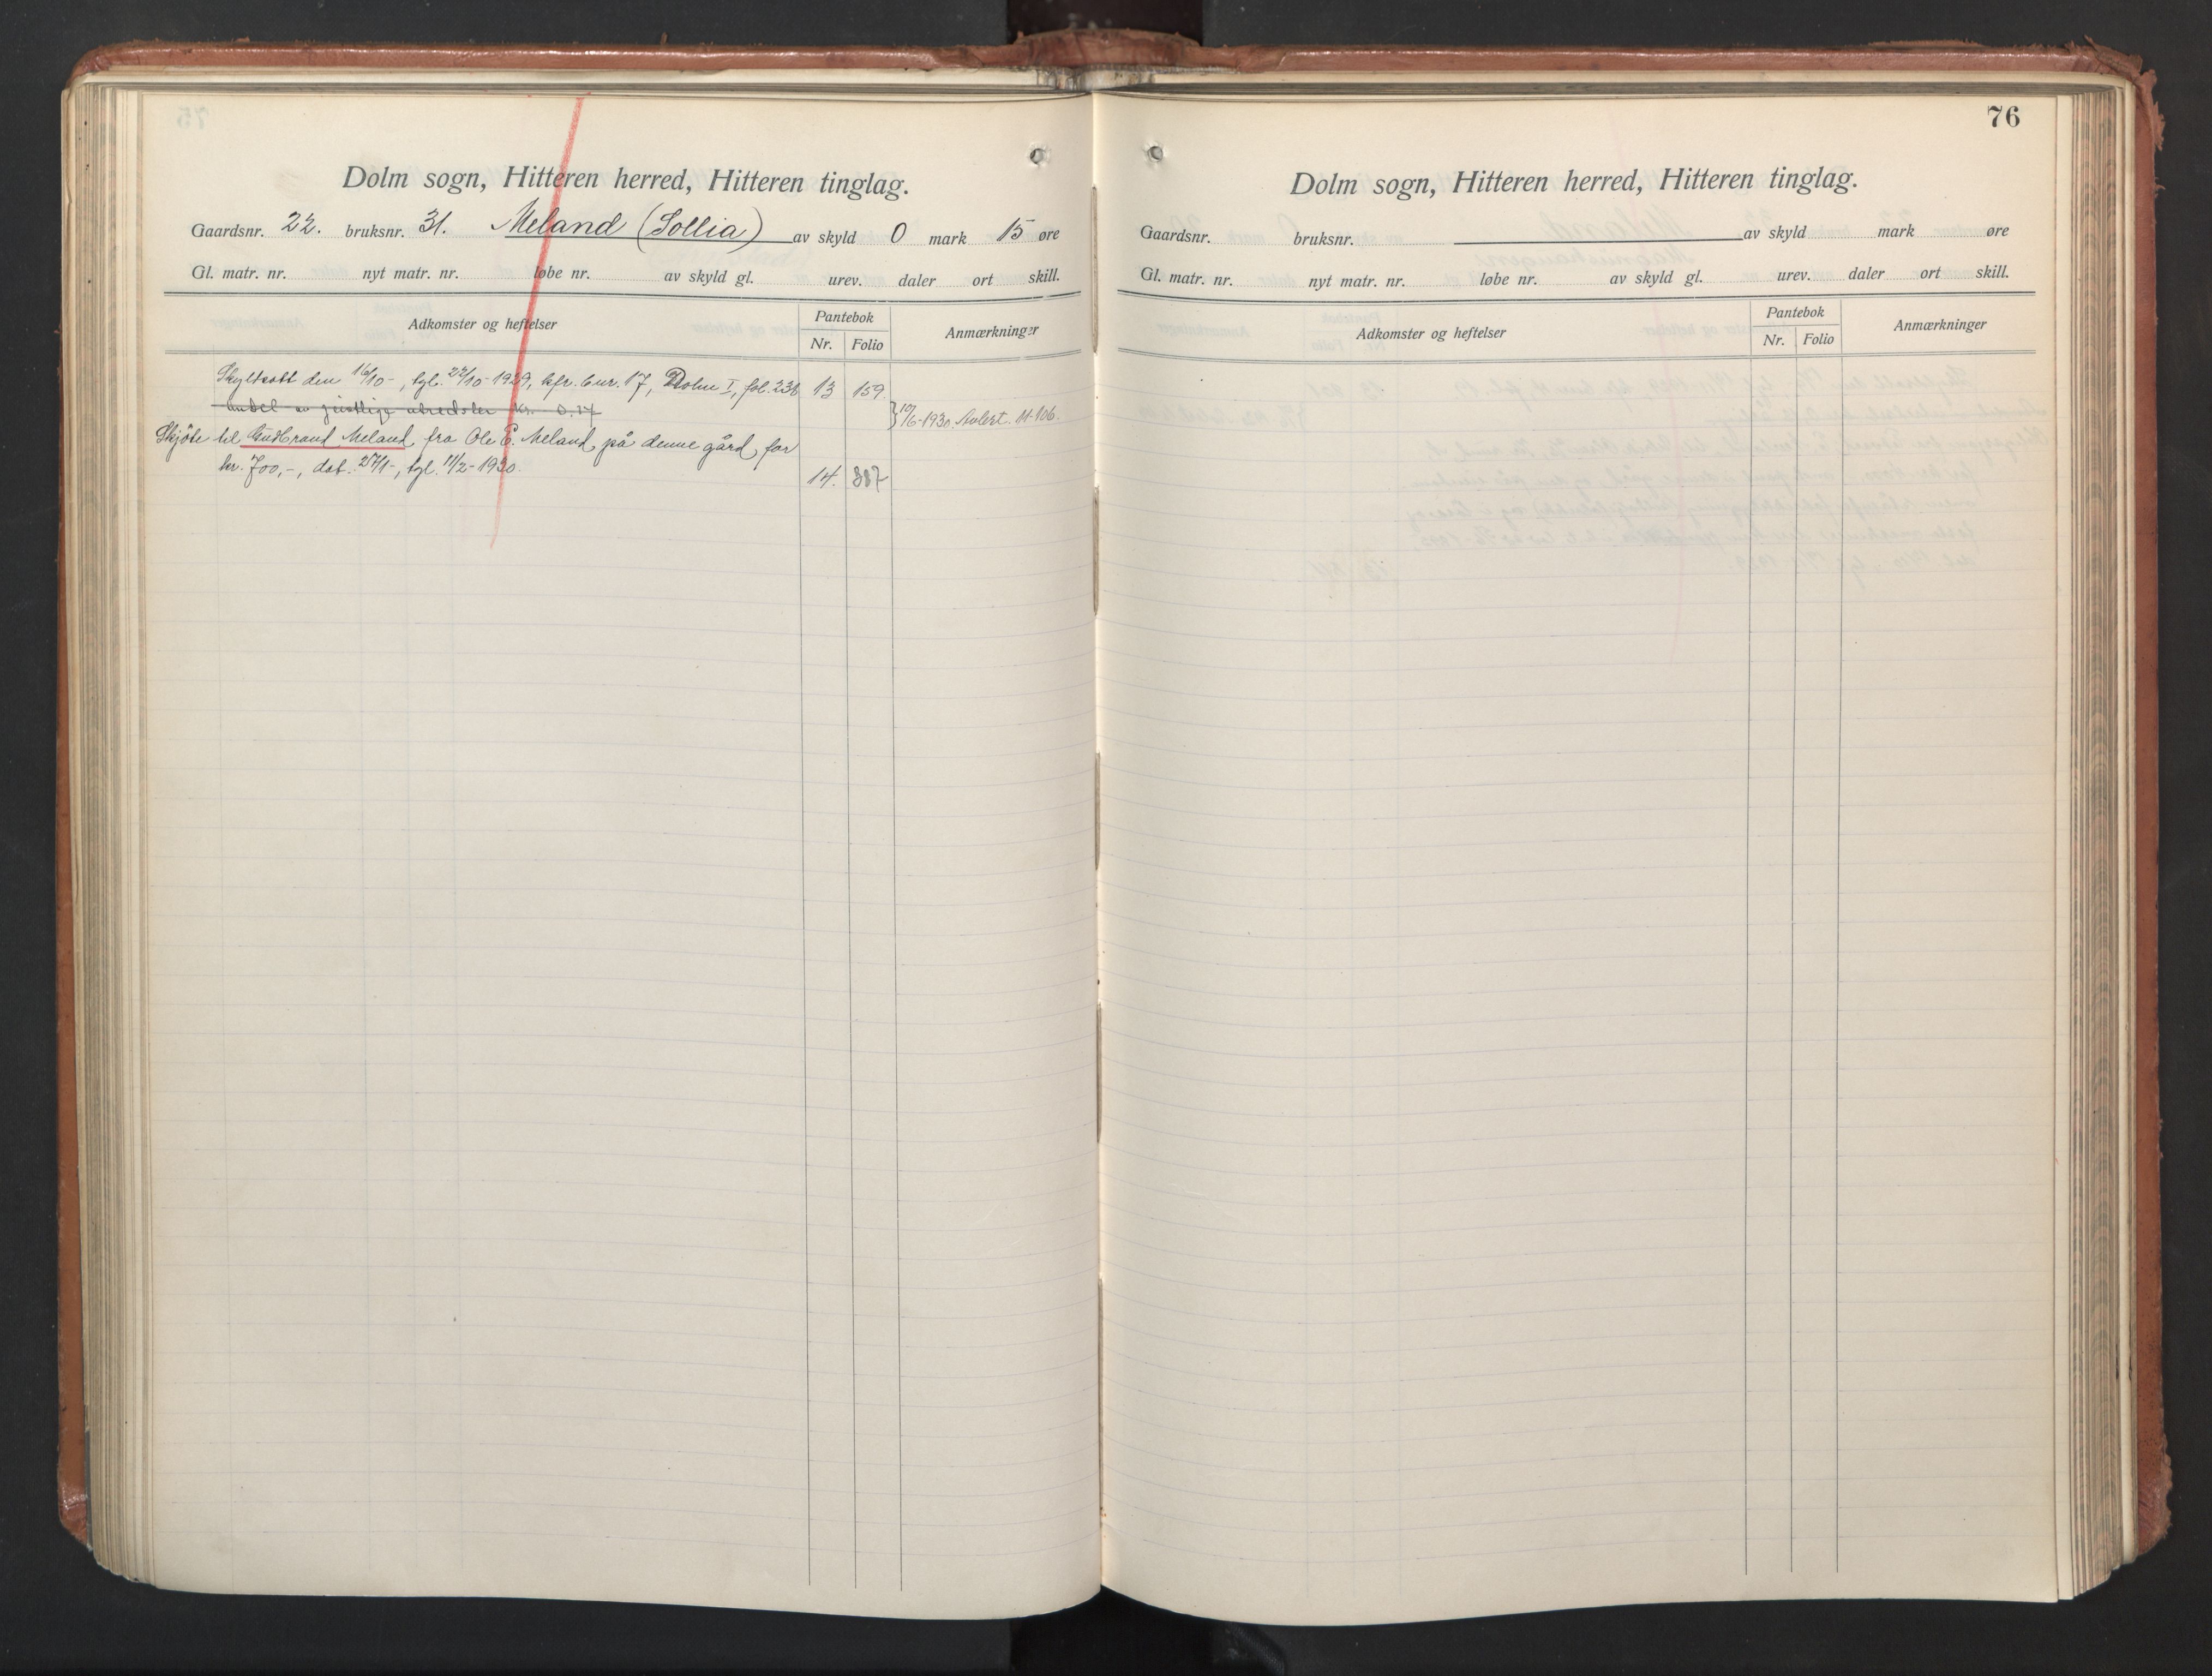 Dolm sogn, Hitteren herred, Hitteren tinglag.
Gaardsnr. 22. bruksnr. 31. Meland (Sollia) av skyld 0 mark 15 øre
Gl. matr. nr. nyt matr. nr. løbe nr. av skyld gl. urev. daler ort skill.
Adkomster og heftelser
Pantebok
Nr. Folio
Anmærkninger
Skyldsatt den 16/10-, tgl. 22/10-1929, kfr. bnr. 17, Dolm I, fol. 238 13 159.
Andel av geistlige utredsler kr. 0.14
}10/6-1930. Avløst. 11-106.
Skjöte til Gudbrand Meland fra Ole E. Meland på denne gård for
kr. 700,-, dat. 27/1-, tgl. 11/2-1930. 14. 387
76
Dolm sogn, Hitteren herred, Hitteren tinglag.
Gaardsnr. bruksnr. av skyld mark øre
Gl. matr. nr. nyt matr. nr. løbe nr. av skyld gl. urev. daler ort skill.
Adkomster og heftelser
Pantebok
Nr. Folio
Anmærkninger